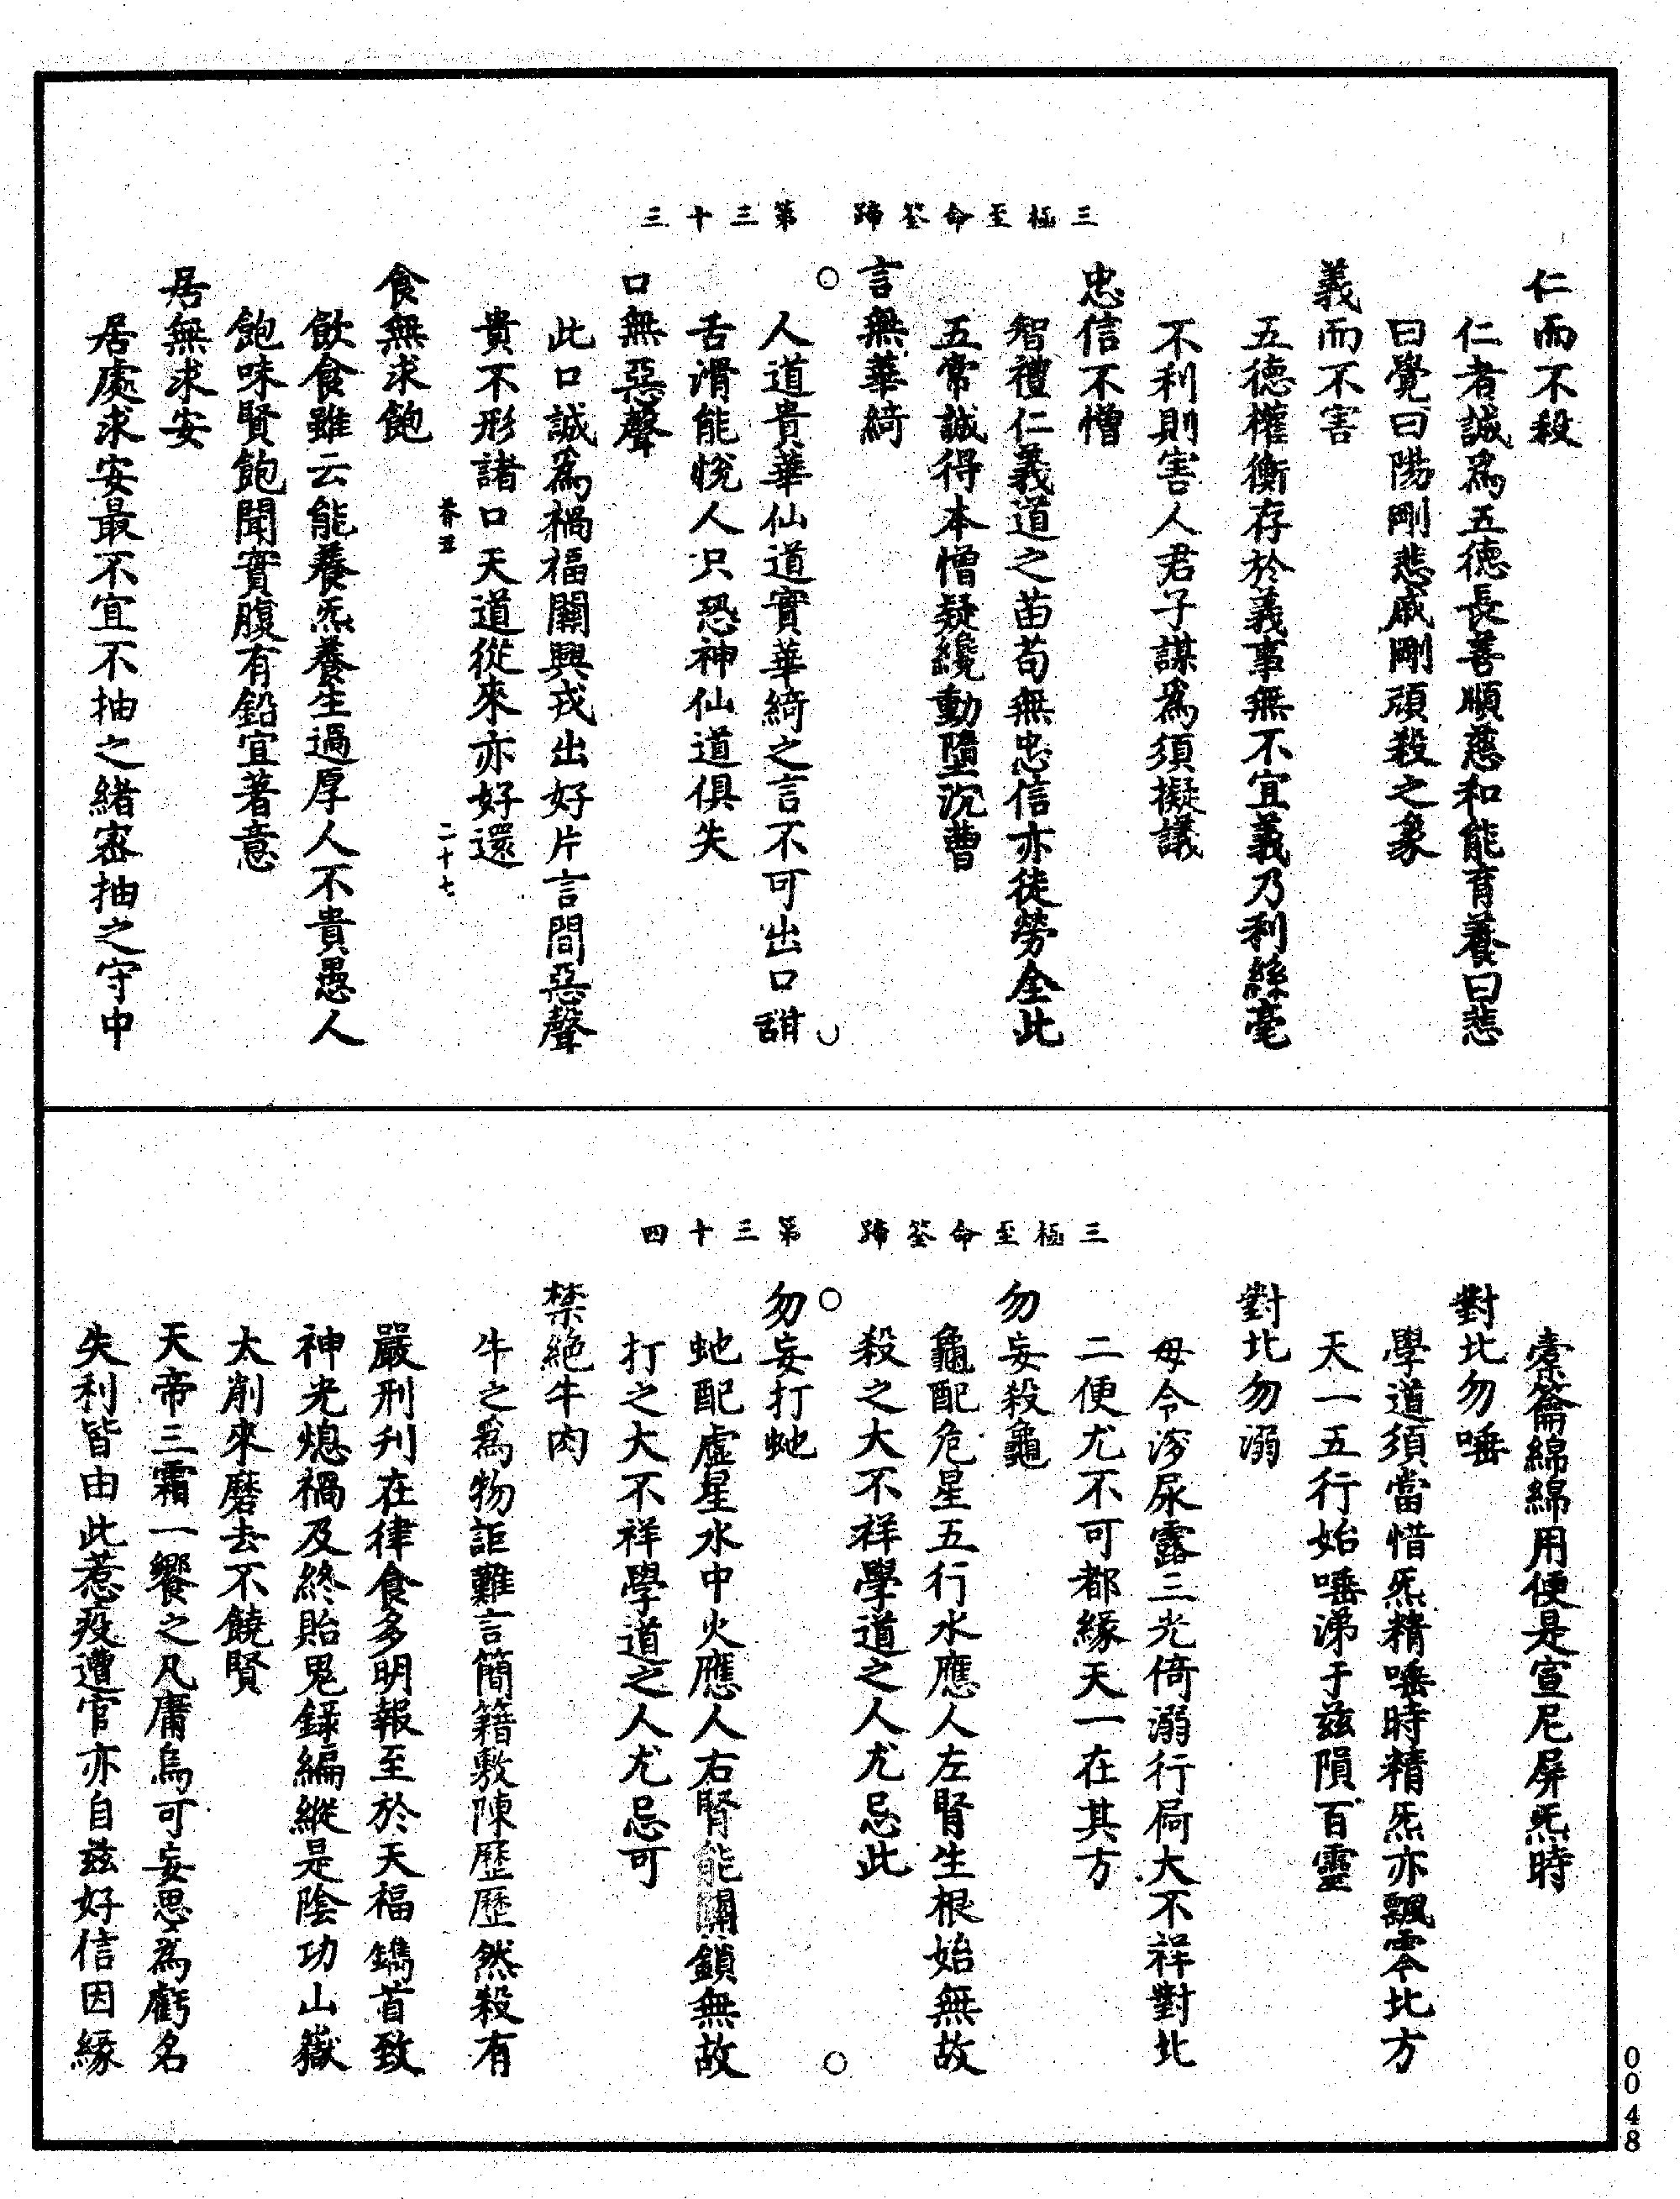 三極至命筌蹄　第三十三
仁而不殺
仁者誠爲五德長善順慈和能育養曰悲
曰覺曰陽剛悲戚剛頑殺之象
義而不害
五德權衡存於義事無不宜義乃利絲毫
不利則害人君子謀爲須擬議
忠信不憎
智禮仁義道之苗苟無忠信亦徒勞全此
五常誠得本憎疑纔動墮沉曹
言無華綺
人道貴華仙道實華綺之言不可出口甜
舌滑能悅人只恐神仙道俱失
口無惡聲
此口誠爲禍福關興戎出好片言間惡聲
貴不形諸口天道從來亦好還
二十七
食無求飽
飲食雖云能養炁養生過厚人不貴愚人
飽味賢飽聞實腹有鉛宜著意
居無求安
居處求安最不宜不抽之緒密抽之守中
三極至命筌蹄　第三十四
橐籥綿綿用便是宣尼屏炁時
對北勿唾
學道須當惜炁精唾時精炁亦飄零北方
天一五行始唾涕于兹隕百靈
對北勿溺
毋令涕尿露三光倚溺行局大不祥對北
二便尤不可都緣天一在其方
勿妄殺龜
龜配危星五行水應人左腎生根始無故
殺之大不祥學道之人尤忌此
勿妄打虵
虵配虛星水中火應人右腎能關鎖無故
打之大不祥學道之人尤忌可
禁絕牛肉
牛之爲物詎難言簡籍敷陳歷歷然殺有
嚴刑刋在律食多明報至於天福鐫首致
神光熄禍及終貽鬼錄編縱是陰功山嶽
太削來磨去不饒賢
天帝三霜一饗之凡庸烏可妄思爲虧名
失利皆由此惹疫遭官亦自兹好信因緣
0048